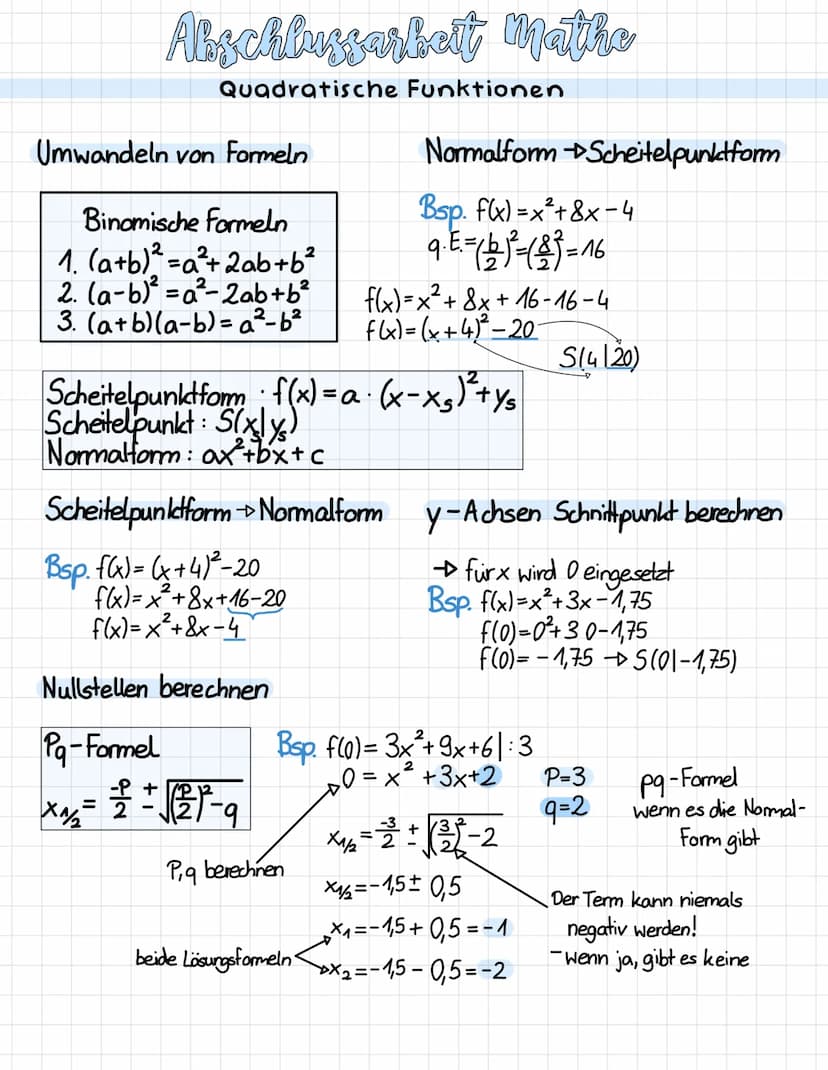 Abschlussarbeit Mathe
Quadratische Funktionen
Umwandeln von Formeln
Binomische Formeln
1. (a+b)² = a²+ 2ab+b²
2. (a-b)² = a²- 2ab+b²
3. (a+b)(a-b) = a²-b²
Normalform → Scheitelpunktform
Bsp. f(x) = x²+8x-4
q.E.=(b/2)²=(8/2)²=16
f(x)=x²+8x+16-16-4
f(x)=(x+4)²-20
S(4|20)
Scheitelpunktform : f(x) = a · (x-xₛ)²+yₛ
Scheitelpunkt : S(xₛ|yₛ)
Normalform : ax²+bx+c
Scheitelpunktform → Normalform
Bsp. f(x)= (x+4)²-20
f(x)=x²+8x+16-20
f(x)=x²+8x-4
y-Achsen Schnittpunkt berechnen
→ für x wird 0 eingesetzt
Bsp. f(x)=x²+3x-1,75
f(0)=0²+3 0-1,75
f(0)= -1,75 → S(0|-1,75)
Nullstellen berechnen
Pq-Formel
x₁/₂ = -P/2 ± √((P/2)²-q)
Bsp. f(0)= 3x²+9x+6 |:3
0 = x² +3x+2
P=3
q=2
pq-Formel
wenn es die Normal-
Form gibt
x₁/₂ = -3/2 ± √((3/2)²-2)
P,q berechnen
x₁/₂ = -1,5 ± 0,5
Der Term kann niemals
negativ werden!
-wenn ja, gibt es keine
x₁=-1,5+0,5=-1
beide Lösungsformeln
x₂=-1,5-0,5=-2